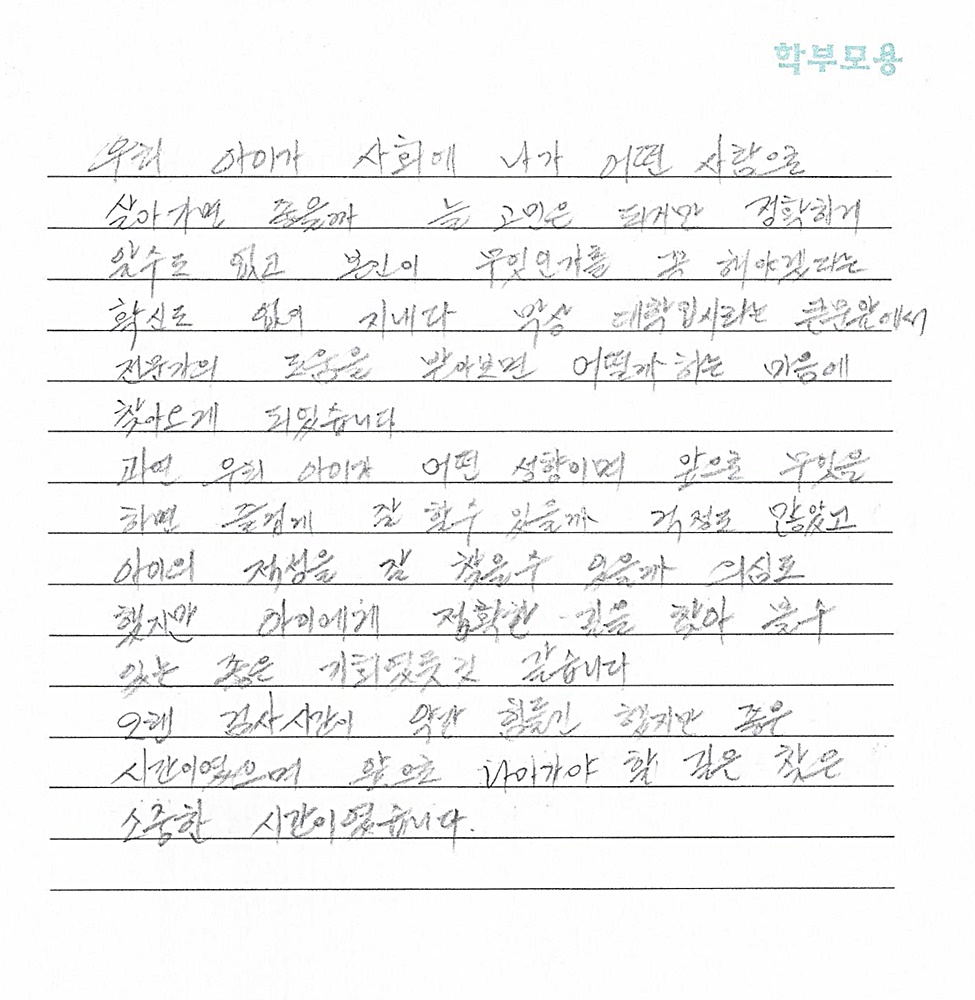 학부모용
우리 아이가 사회에 나가 어떤 사람으로
살아가면 좋을까 늘 고민은 되지만 정확하게
알수도 없고 본인이 무엇인가를 꼭 해야겠다는
확신도 없이 지내다 막상 대학입시라는 큰문앞에서
전문가의 도움을 받아보면 어떨까 하는 마음에
찾아오게 되었습니다
과연 우리 아이가 어떤 성향이며 앞으로 무엇을
하면 즐겁게 잘 할수 있을까 걱정도 많았고
아이의 적성을 잘 찾을수 있을까 의심도
했지만 아이에게 정확한 길을 찾아 볼수
있는 좋은 기회였듯 같습니다
오랜 검사시간이 약간 힘들긴 했지만 좋은
시간이였으며 앞으로 나아가야 할 길은 찾은
소중한 시간이였습니다.